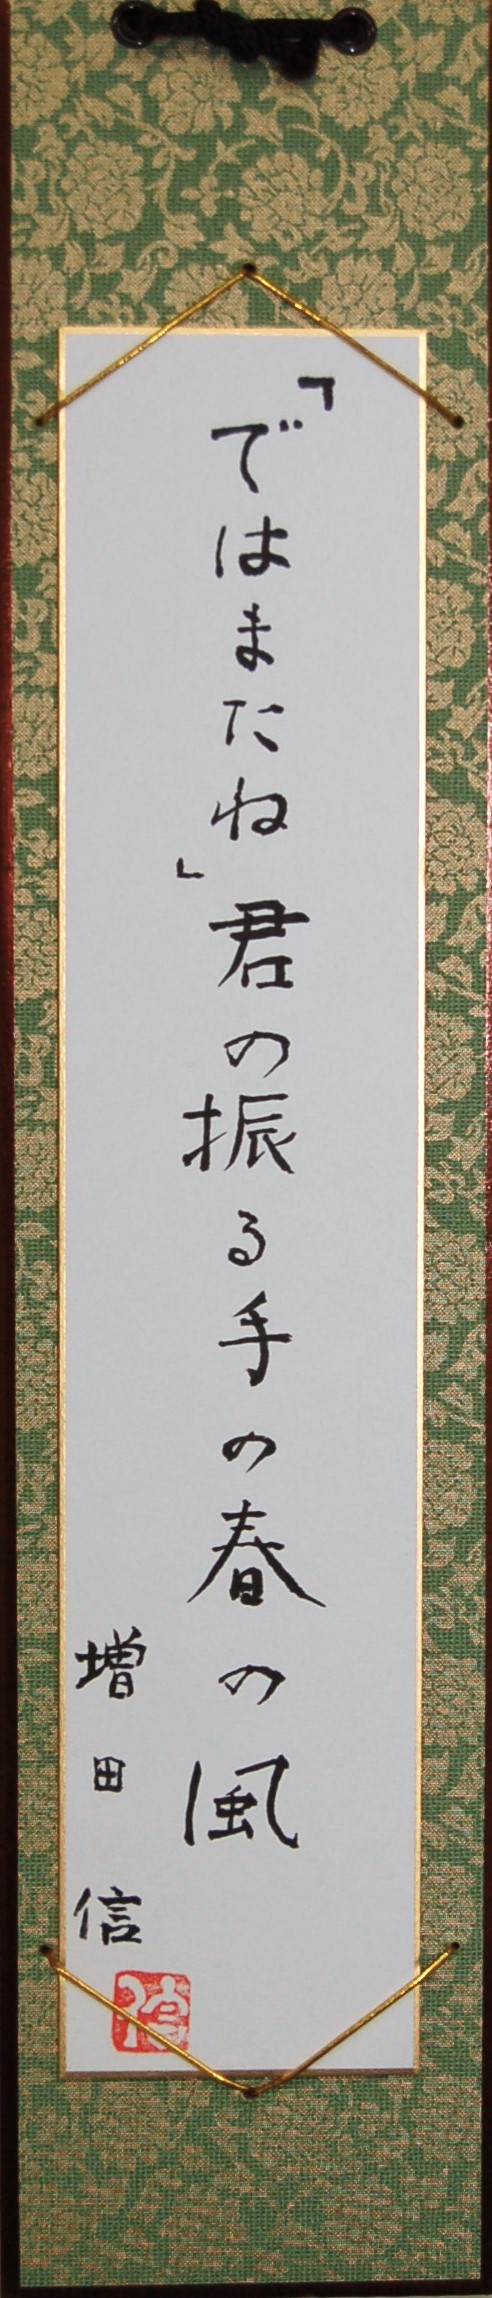 「ではまたね」君の振る手の春の風
増田信
信